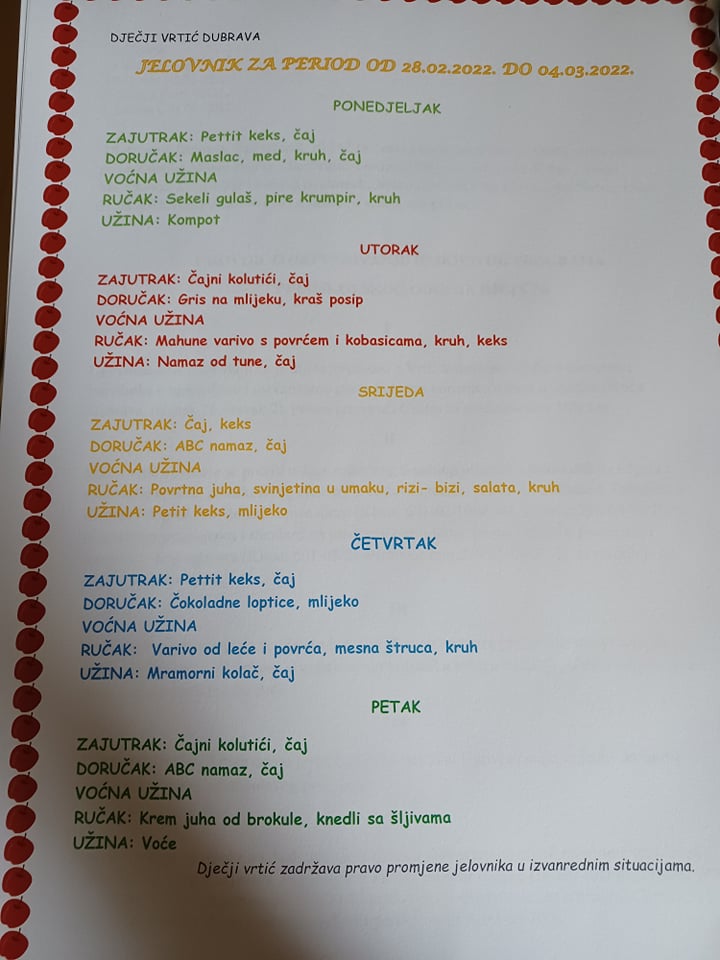 DJEČJI VRTIĆ DUBRAVA
JELOVNIK ZA PERIOD OD 28.02.2022. DO 04.03.2022.
PONEDJELJAK
ZAJUTRAK: Pettit keks, čaj
DORUČAK: Maslac, med, kruh, čaj
VOĆNA UŽINA
RUČAK: Sekeli gulaš, pire krumpir, kruh
UŽINA: Kompot
UTORAK
ZAJUTRAK: Čajni kolutići, čaj
DORUČAK: Gris na mlijeku, kraš posip
VOĆNA UŽINA
RUČAK: Mahune varivo s povrćem i kobasicama, kruh, keks
UŽINA: Namaz od tune, čaj
SRIJEDA
ZAJUTRAK: Čaj, keks
DORUČAK: ABC namaz, čaj
VOĆNA UŽINA
RUČAK: Povrtna juha, svinjetina u umaku, rizi- bizi, salata, kruh
UŽINA: Petit keks, mlijeko
ČETVRTAK
ZAJUTRAK: Pettit keks, čaj
DORUČAK: Čokoladne loptice, mlijeko
VOĆNA UŽINA
RUČAK: Varivo od leće i povrća, mesna štruca, kruh
UŽINA: Mramorni kolač, čaj
PETAK
ZAJUTRAK: Čajni kolutići, čaj
DORUČAK: ABC namaz, čaj
VOĆNA UŽINA
RUČAK: Krem juha od brokule, knedli sa šljivama
UŽINA: Voće
Dječji vrtić zadržava pravo promjene jelovnika u izvanrednim situacijama.